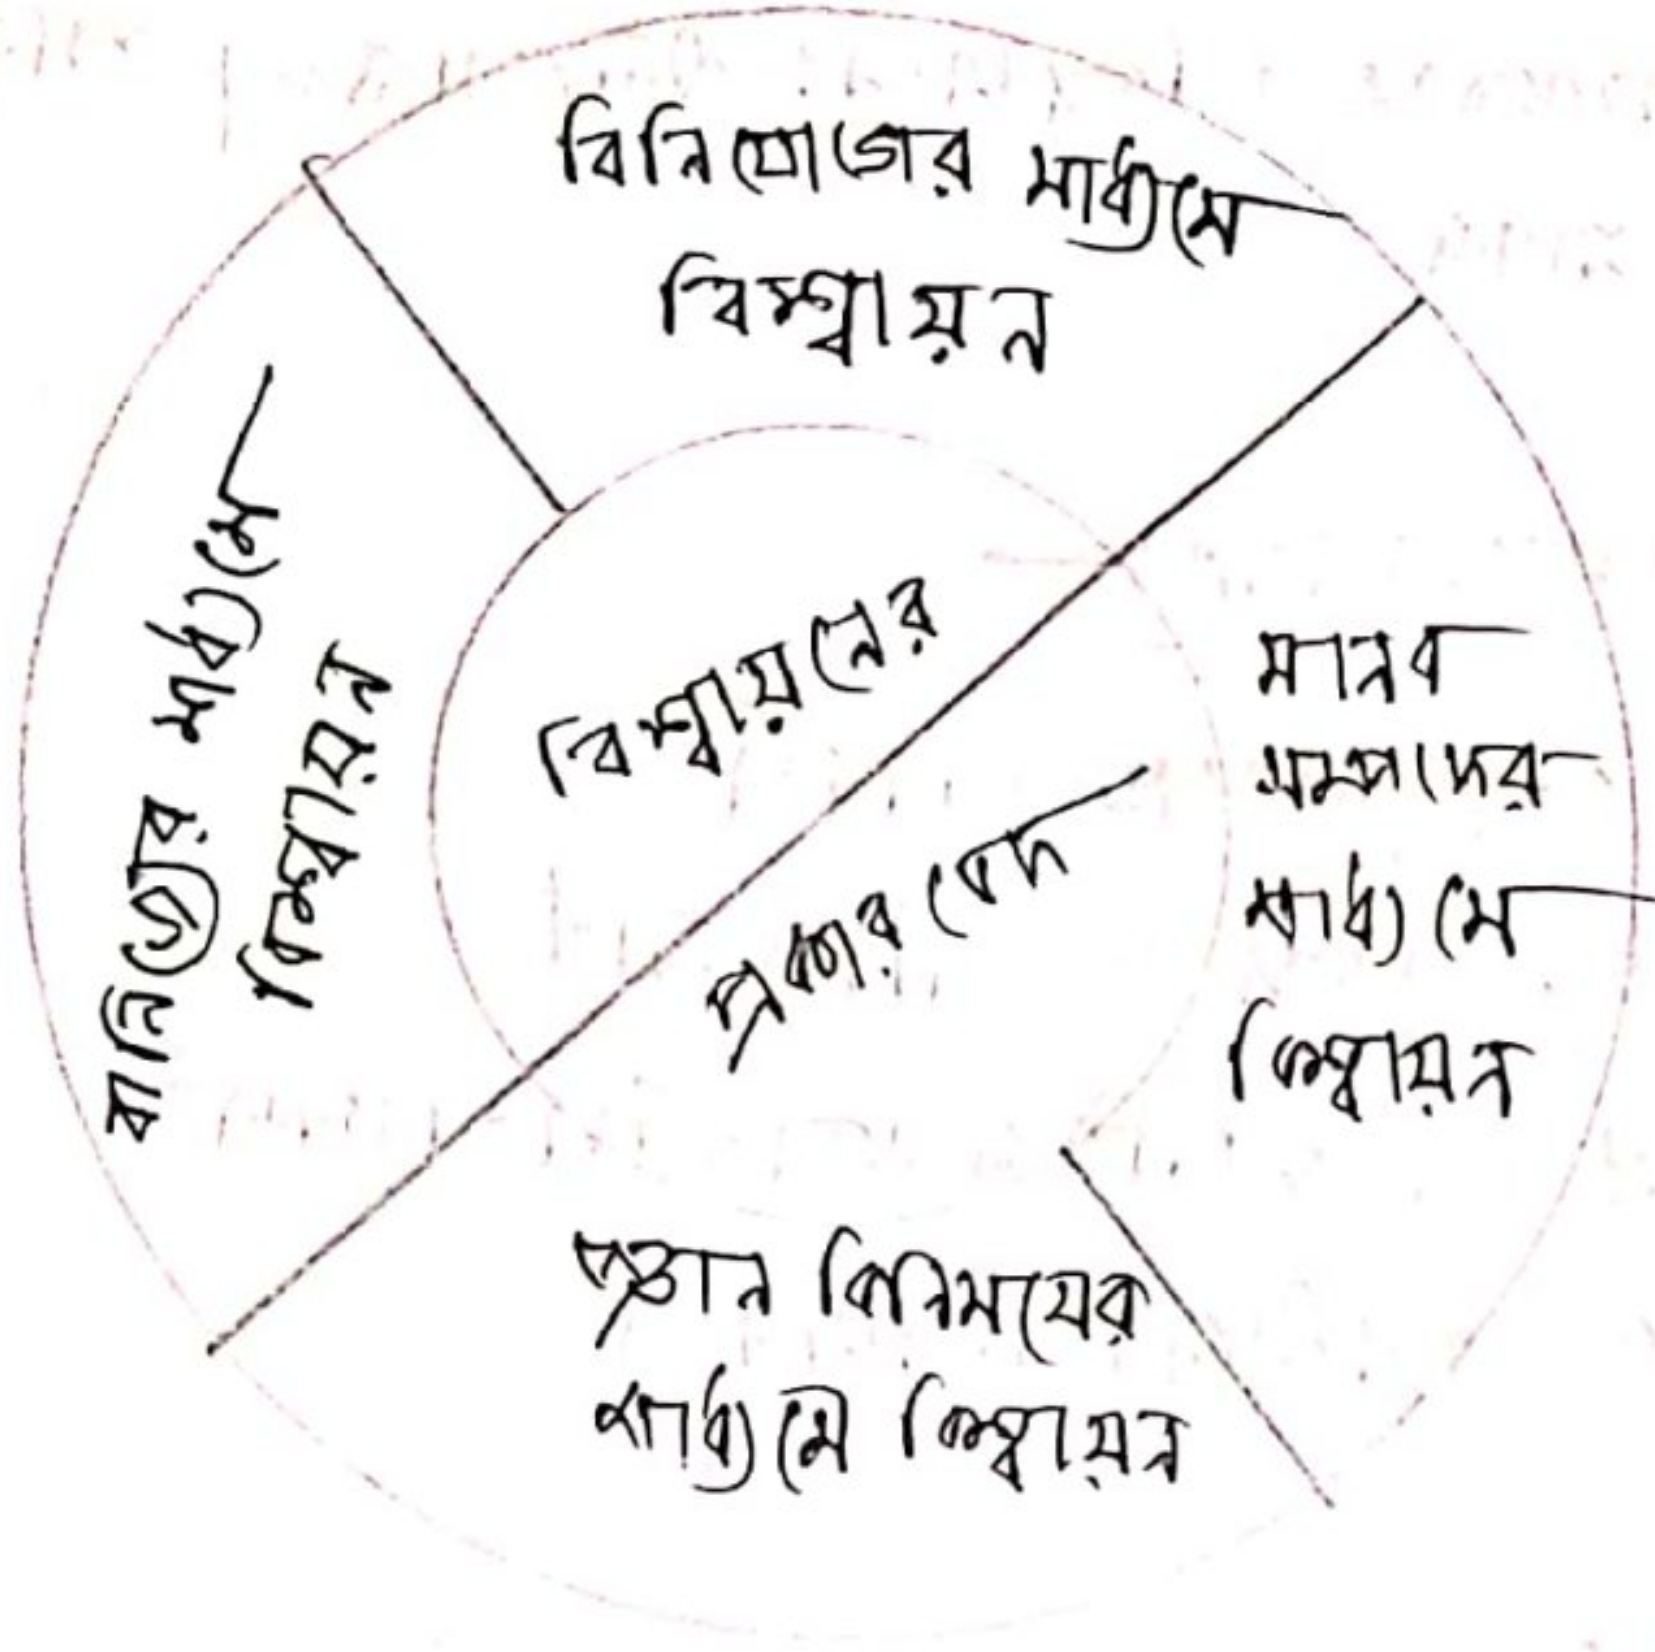 বিনিয়োগের মাধ্যমে
বিশ্বায়ন
বানিজ্যের মাধ্যমে
বিশ্বায়ন
বিশ্বায়নের
প্রকারবেদ
মানব
সম্পদের
মাধ্যমে
বিশ্বায়ন
বিনিময়ের
মাধ্যমে বিশ্বায়ন